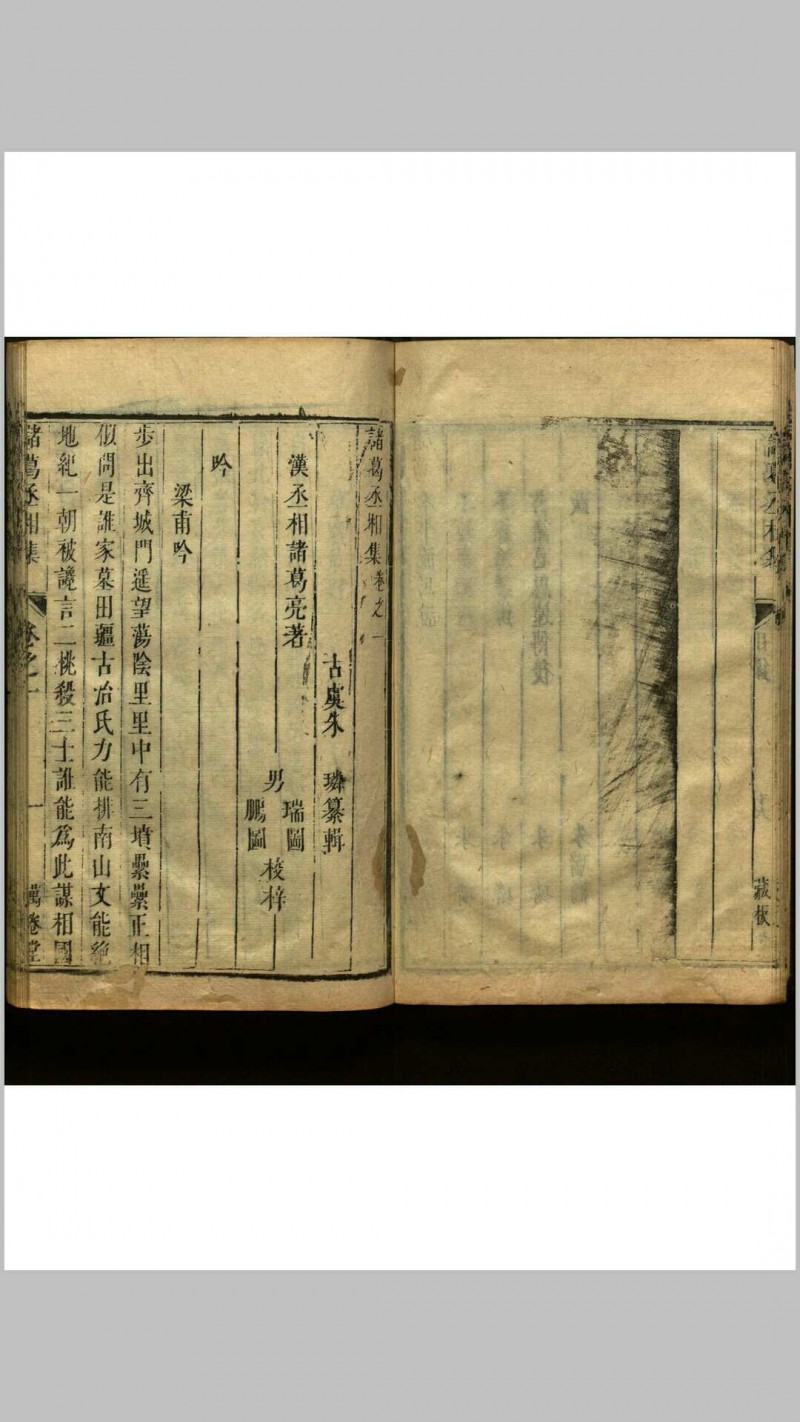 藏板
諸葛丞相集卷之一
古虞朱 璘纂輯
漢丞相諸葛亮著
男 瑞圖
鵬圖
梭梓
吟
梁甫吟
步出齊城門遥望蕩陰里里中有三墳纍纍正相
似問是誰家墓田疆古冶氏力能排南山文能絶
地紀一朝被讒言二桃殺三士誰能爲此謀相國
諸葛丞相集
卷之一
一
萬卷堂